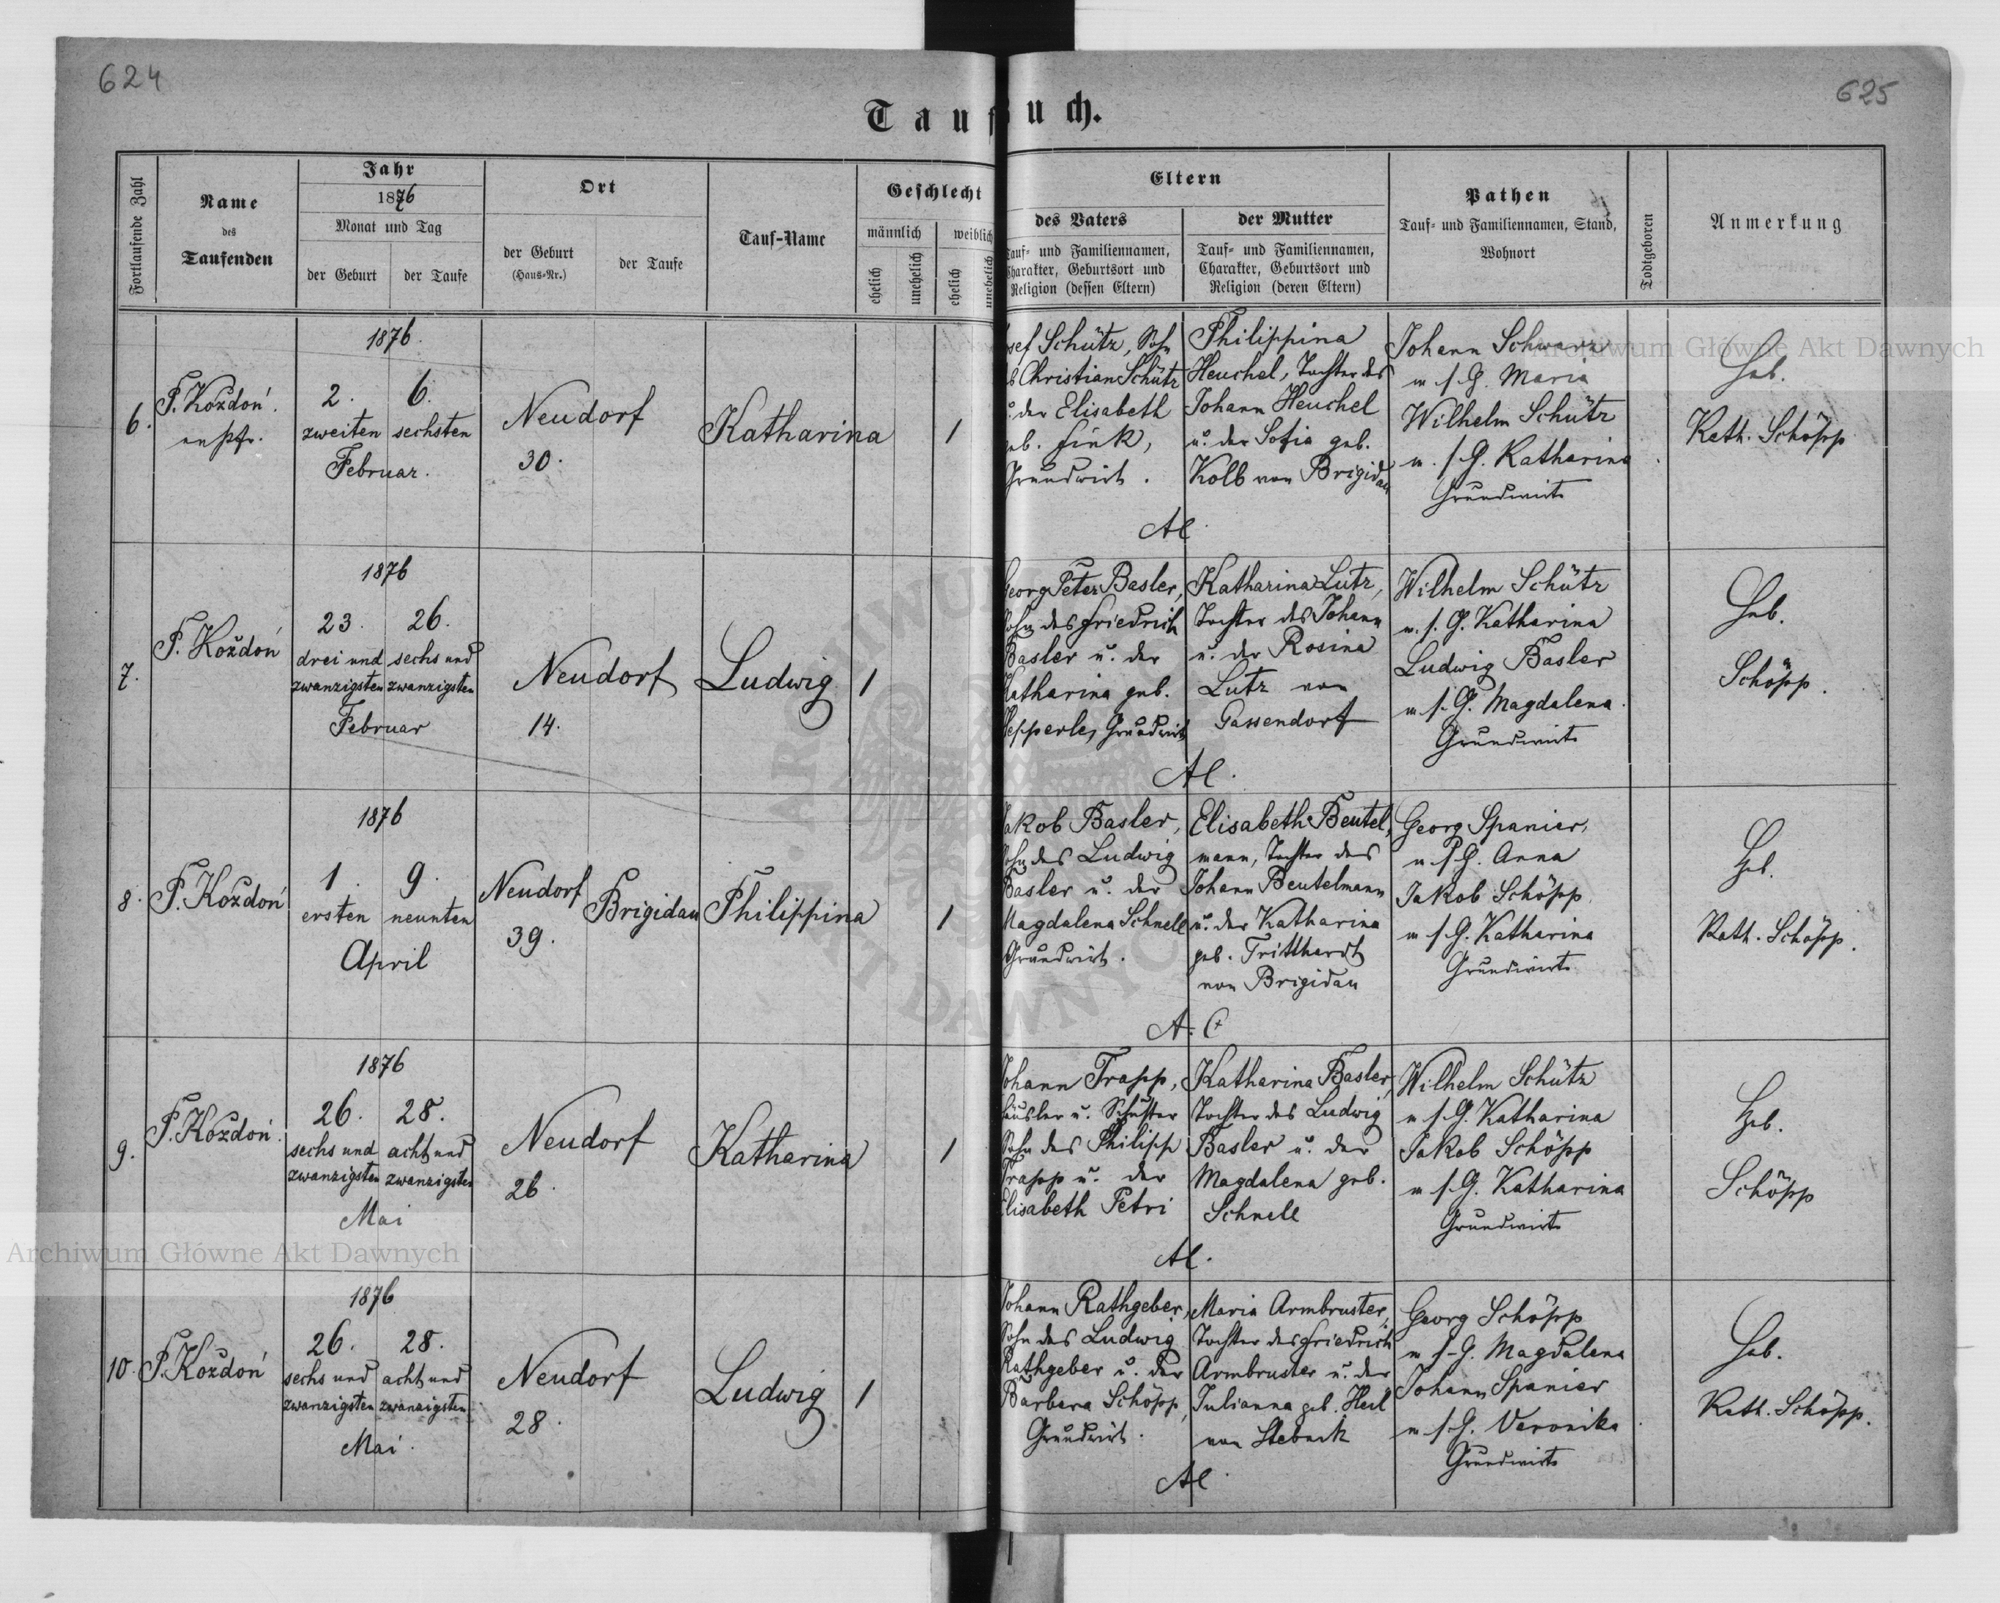 624
625
Taufbuch.
Fortlaufende Zahl
Name
des
Taufenden
Jahr
1876
Monat und Tag
der Geburt
der Taufe
Ort
der Geburt
(Haus-Nr.)
der Taufe
Tauf-Name
Geschlecht
männlich
weiblich
ehelich
unehelich
ehelich
unehelich
Eltern
des Vaters
Tauf- und Familiennamen,
Charakter, Geburtsort und
Religion (dessen Eltern)
der Mutter
Tauf- und Familiennamen,
Charakter, Geburtsort und
Religion (deren Eltern)
Pathen
Tauf- und Familiennamen, Stand,
Wohnort
Todtgeboren
Anmerkung
6.
P. Kozdoń.
1876.
2. 6.
zweiten sechsten
Februar.
Neudorf
30.
Katharina
1
sef Schütz, Sohn
s Christian Schütz
u. der Elisabeth
geb. Fink,
Grundwirt.
Philippina
Heuchel, Tochter des
Johann Heuchel
u. der Sofia geb.
Kolb von Brigidau
AC
Johann Schwarz
u. s. G. Maria
Wilhelm Schütz
u. s. G. Katharina
Grundwirte
Heb.
Kath. Schöpp
7.
P. Kozdoń
1876
23. 26.
drei und sechs und
zwanzigsten zwanzigsten
Februar
Neudorf
14.
Ludwig
1
Georg Peter Basler,
Sohn des Friedrich
Basler u. der
Katharina geb.
Hepperle, Grundwirt
Katharina Lutz,
Tochter des Johann
u. der Rosina
Lutz von
Gassendorf
AC.
Wilhelm Schütz
u. s. G. Katharina
Ludwig Basler
u. s. G. Magdalena
Grundwirte
Heb.
Schöpp.
8.
P. Kozdoń
1876
1. 9.
ersten neunten
April
Neudorf
39.
Brigidau
Philippina
1
Jakob Basler,
Sohn des Ludwig
Basler u. der
Magdalena Schnell
Grundwirt.
Elisabeth Beutel-
mann, Tochter des
Johann Beutelmann
u. der Katharina
geb. Tritthardt
von Brigidau
A. C
Georg Spanier,
u. s. G. Anna
Jakob Schöpp
u. s. G. Katharina
Grundwirte
Heb.
Kath. Schöpp.
9.
P. Kozdoń.
1876
26. 28.
sechs und acht und
zwanzigsten zwanzigsten
Mai
Neudorf
26.
Katharina
1
Johann Trapp,
Häusler u. Schuster
Sohn des Philipp
Trapp u. der
Elisabeth Petri
Katharina Basler,
Tochter des Ludwig
Basler u. der
Magdalena geb.
Schnell
AC.
Wilhelm Schütz
u. s. G. Katharina
Jakob Schöpp
u. s. G. Katharina
Grundwirte
Heb.
Schöpp
10.
P. Kozdoń
1876
26. 28.
sechs und acht und
zwanzigsten zwanzigsten
Mai.
Neudorf
28.
Ludwig
1
Johann Rathgeber,
Sohn des Ludwig
Rathgeber u. der
Barbara Schöpp,
Grundwirt.
Maria Armbruster,
Tochter des Friedrich
Armbruster u. der
Julianna geb. Heil
von
AC.
Georg Schöpp
u. s. G. Magdalena
Johann Spanier
u. s. G. Veronika
Grundwirte
Heb.
Kath. Schöpp.
Archiwum Główne Akt Dawnych
Archiwum Główne Akt Dawnych